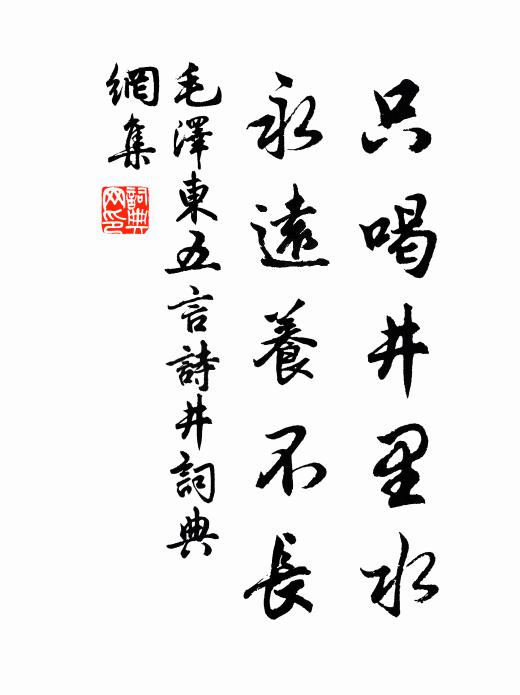 只喝井里水
永遠養不長
毛澤東五言詩井詞典
網集
詞典
网印